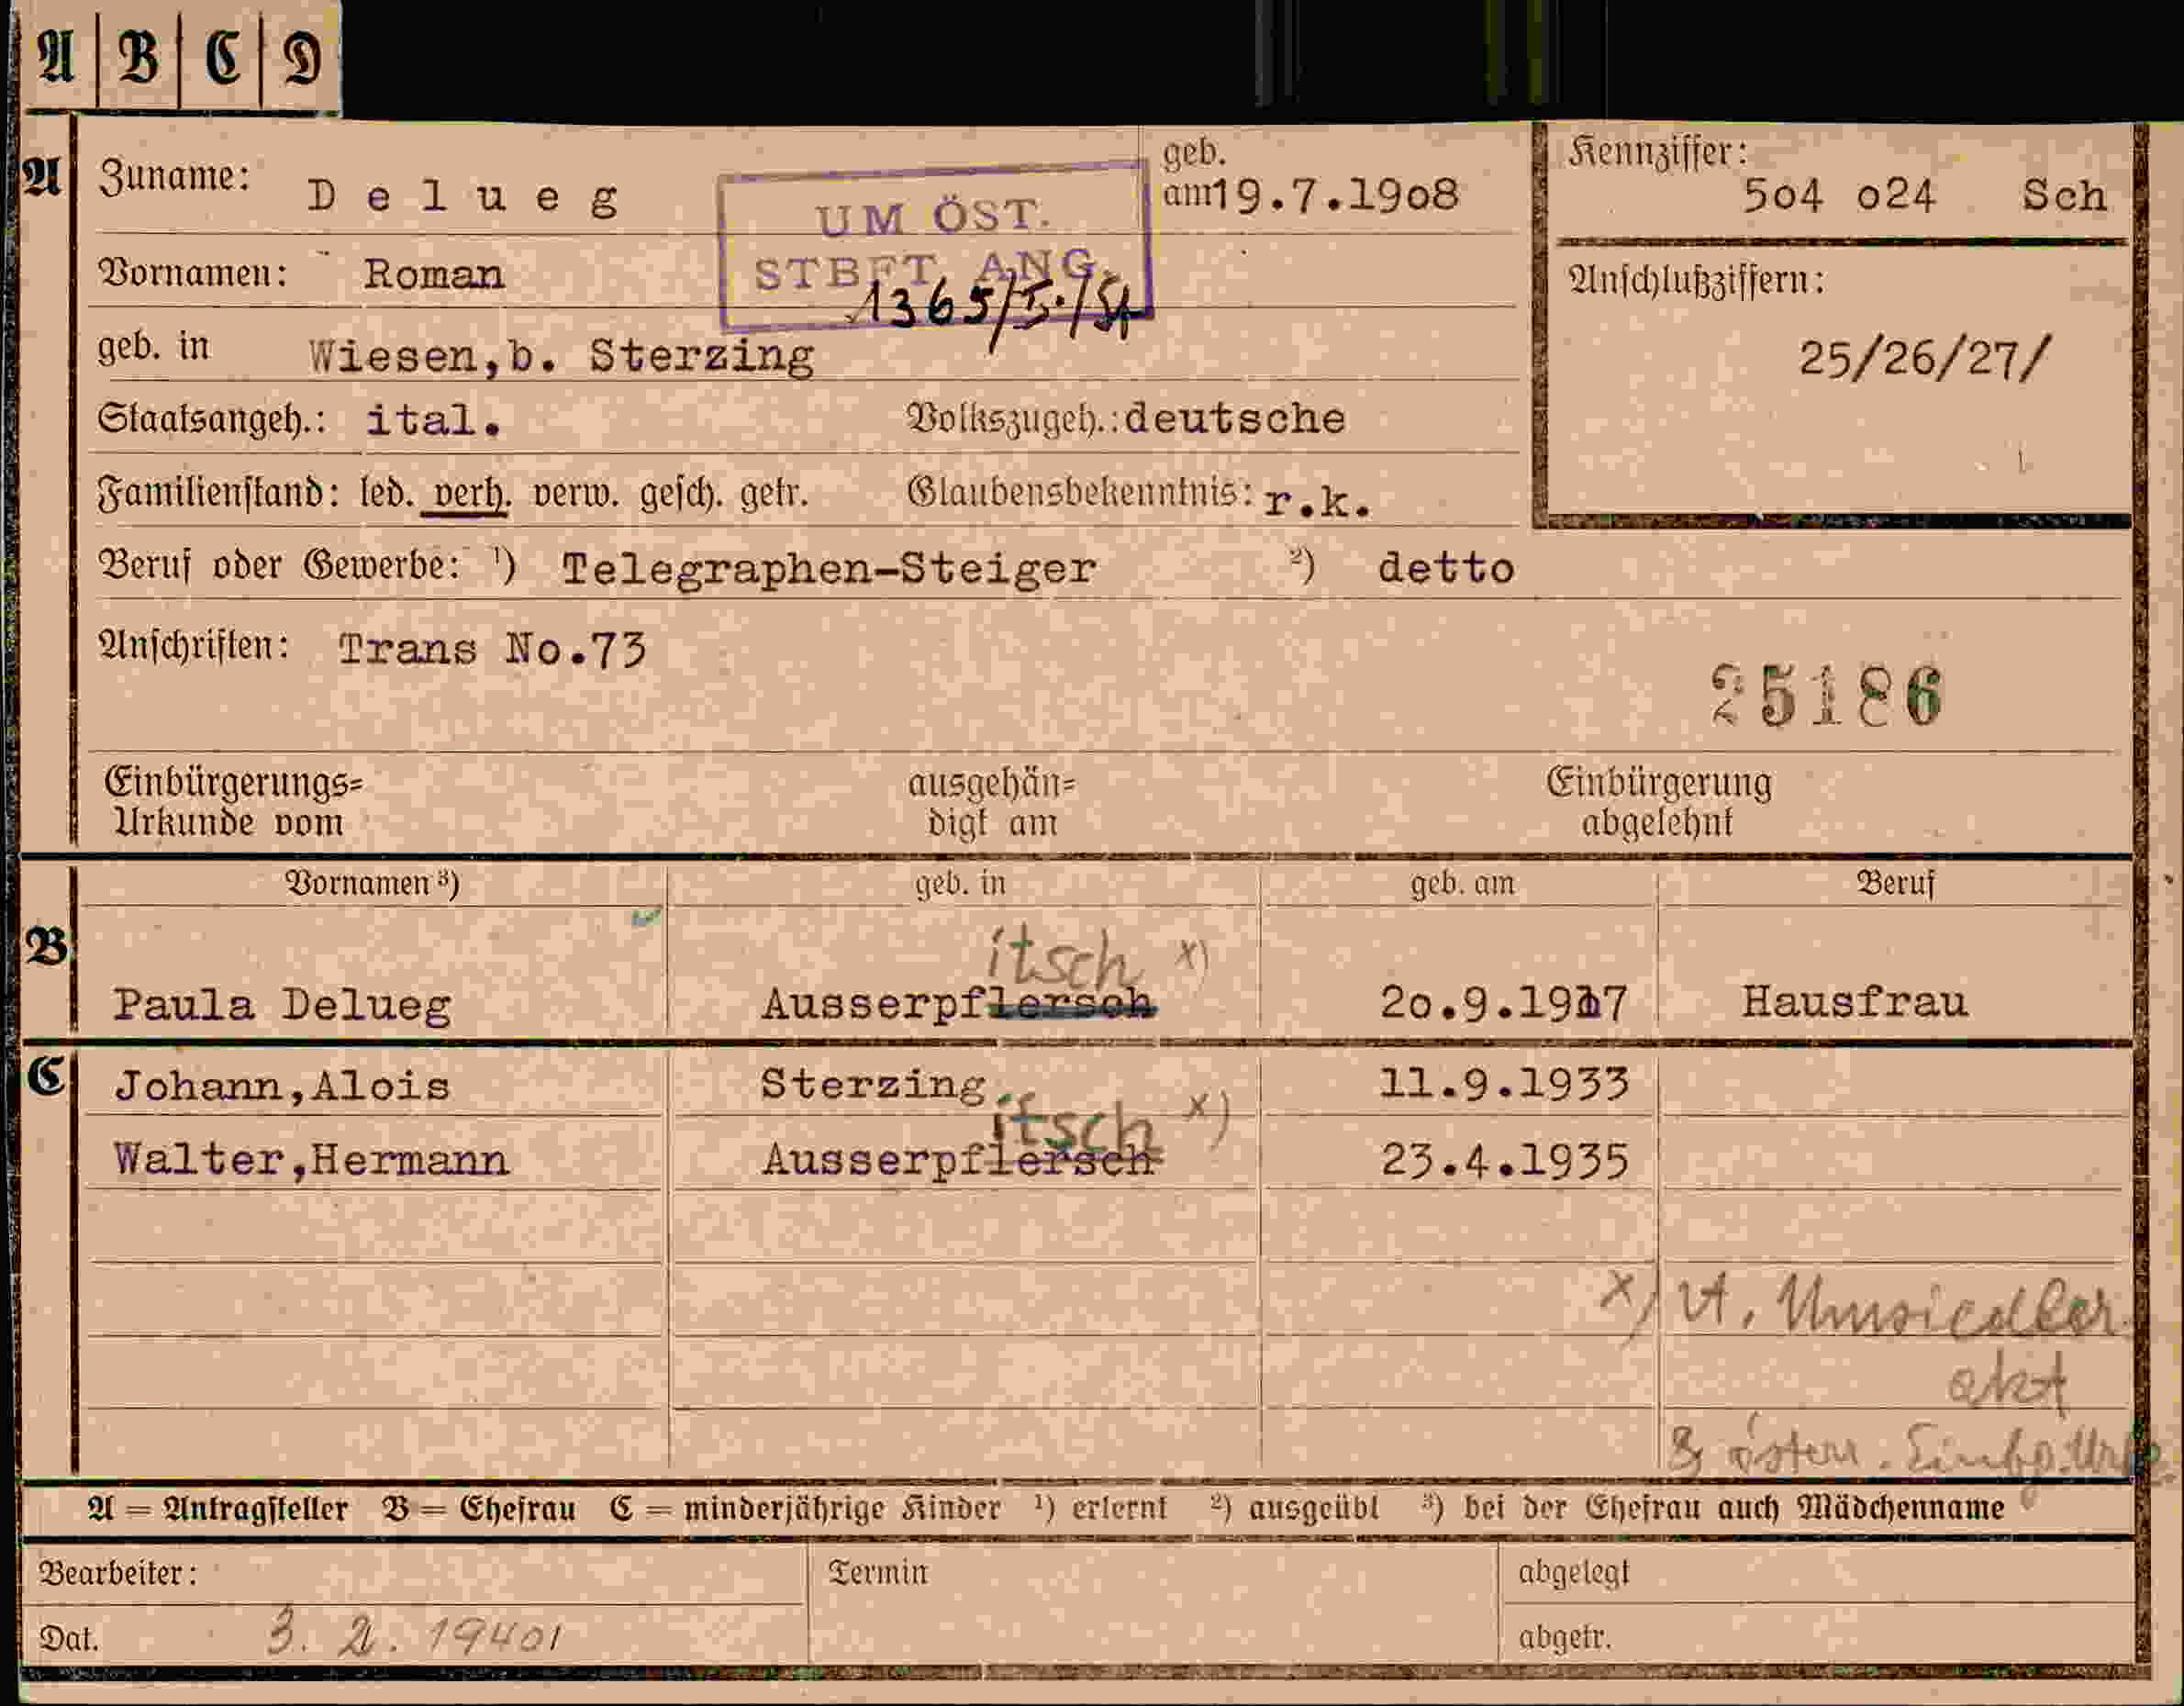 A B C D
A Zuname: Delueg geb. am 19.7.19o8 Kennziffer: 5o4 o24 Sch
UM ÖST.
STBFT. ANG.
1365/5./54
Vornamen: Roman
Anschlußziffern:
25/26/27/
geb. in Wiesen,b. Sterzing
Staatsangeh.: ital. Volkszugeh.: deutsche
Familienstand: led. verh. verw. gesch. getr. Glaubensbekenntnis: r.k.
Beruf oder Gewerbe: ¹) Telegraphen-Steiger ²) detto
Anschriften: Trans No.73
25186
Einbürgerungs=
Urkunde vom
ausgehän=
digt am
Einbürgerung
abgelehnt
Vornamen ³) geb. in geb. am Beruf
B
itsch x)
Paula Delueg Ausserpflersch 2o.9.1917 Hausfrau
C Johann,Alois Sterzing 11.9.1933
itsch x)
Walter,Hermann Ausserpflersch 23.4.1935
x) lt. Umsiedler
akt
& österr.
A = Antragsteller B = Ehefrau C = minderjährige Kinder ¹) erlernt ²) ausgeübt ³) bei der Ehefrau auch Mädchenname
Bearbeiter: Termin abgelegt
Dat. 3. 2. 1940 abgetr.